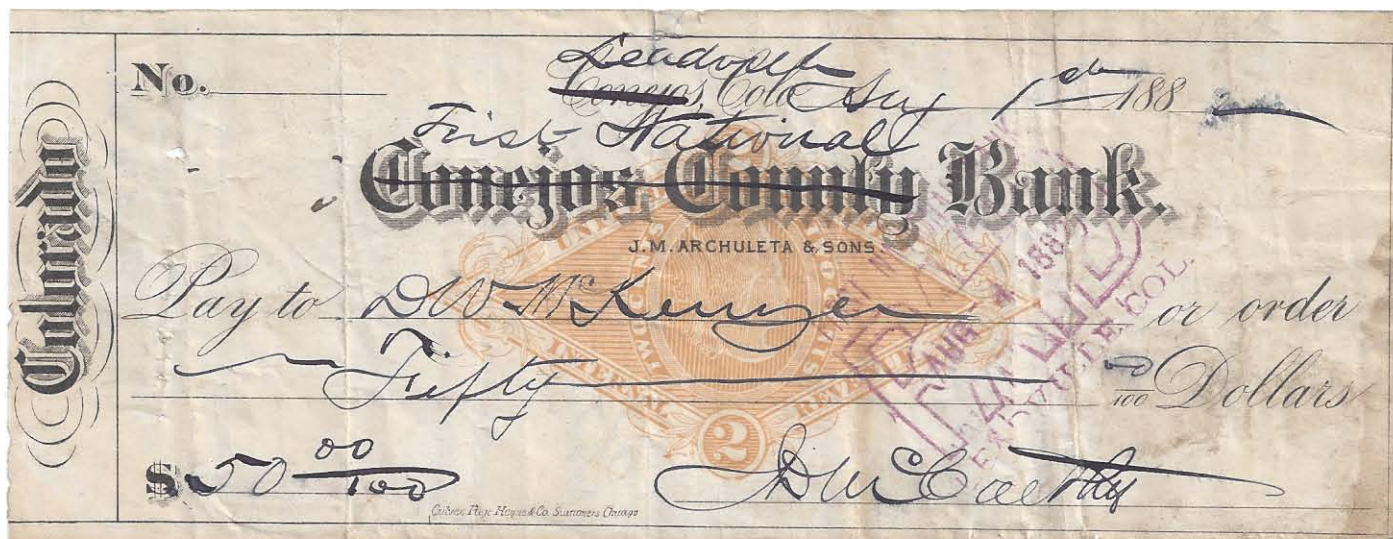 Colorado
No.
Leadville
Conejos, Colo Aug 1st 1882
First National
Conejos County Bank.
J.M. ARCHULETA & SONS
UNITED
INTERNAL REVENUE
2
Pay to D W McKenzer or order
Fifty 00/100 Dollars
$ 50 00/100
J D McCarthy
Culver, Page, Hoyne & Co. Stationers Chicago
AUG 1882
PAID
COL.